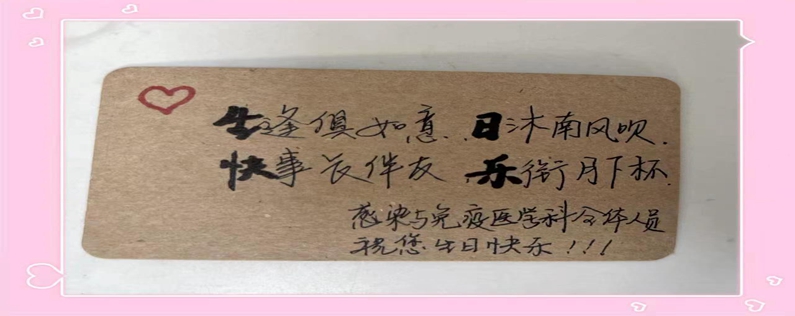 生逢俱如意.日沐南风吹.
快事长伴友,乐衔月下杯.
感染与免疫医学科全体人员
祝您生日快乐!!!